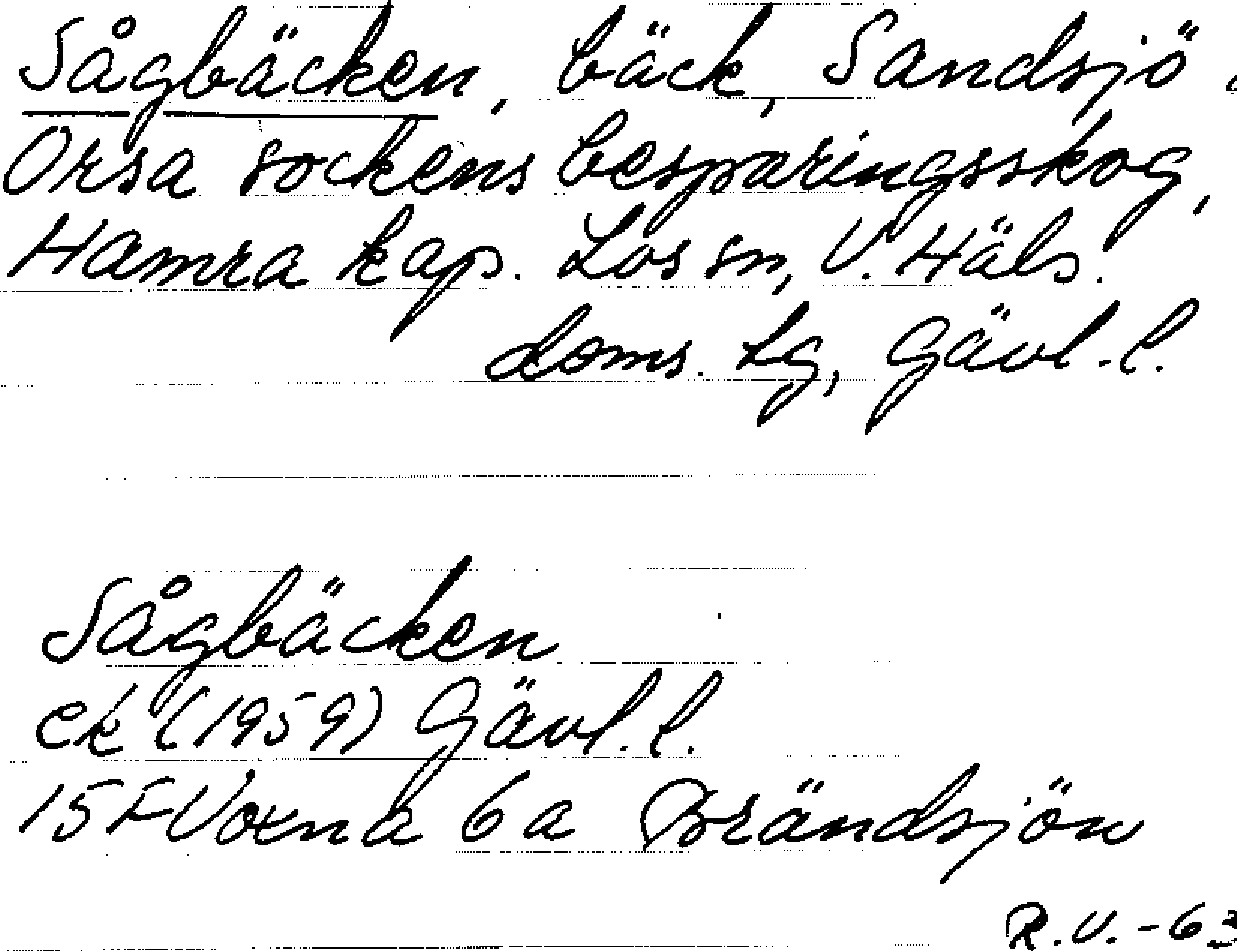 Sågbäcken, bäck, Sandsjö.
Orsa sockens besparingsskog,
Hamra kap. Los sn, V. Häls.
doms. lg, Gävl. l.
Sågbäcken
ek (1959) Gävl. l.
15 F Voxna 6 a Brändsjön
R.V. -63